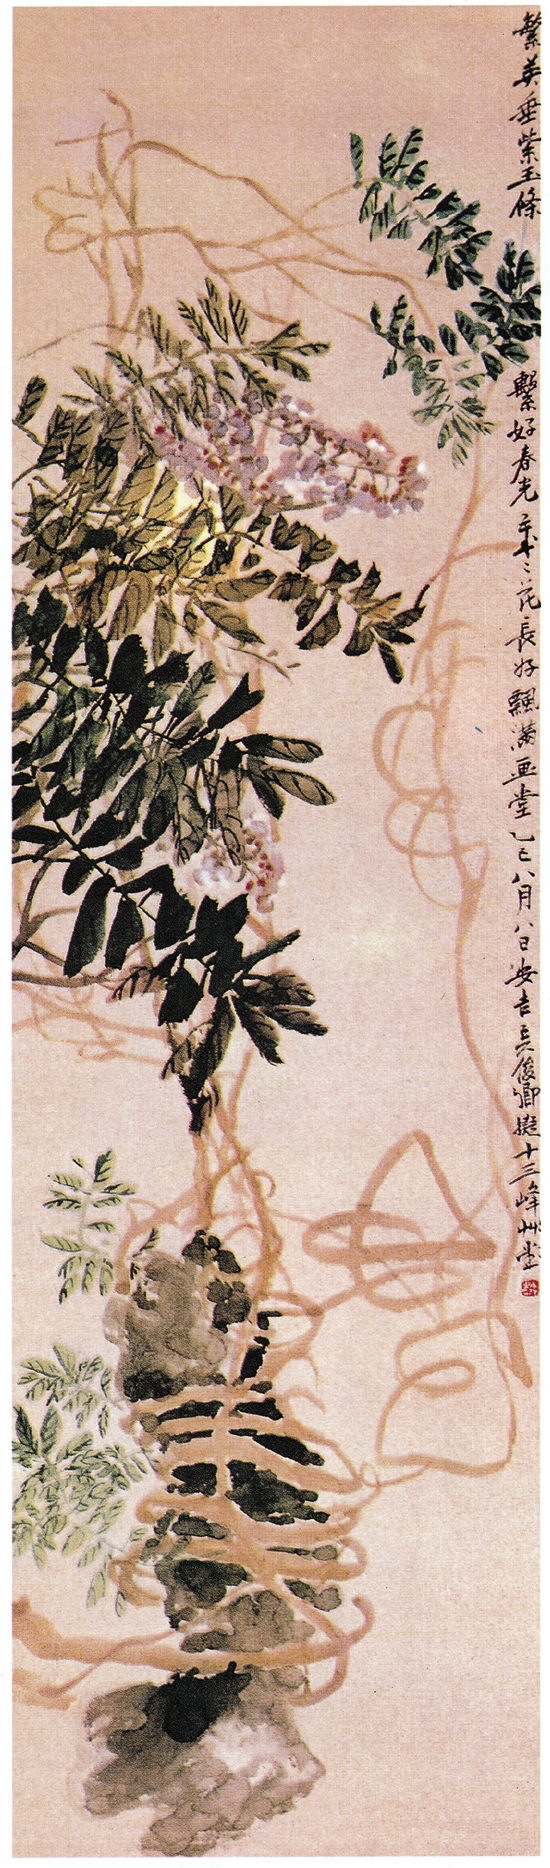 繁英垂紫玉條繫好春光年年花長好飄滿畫堂乙巳八月八日安吉吳俊卿擬十三峰艸堂